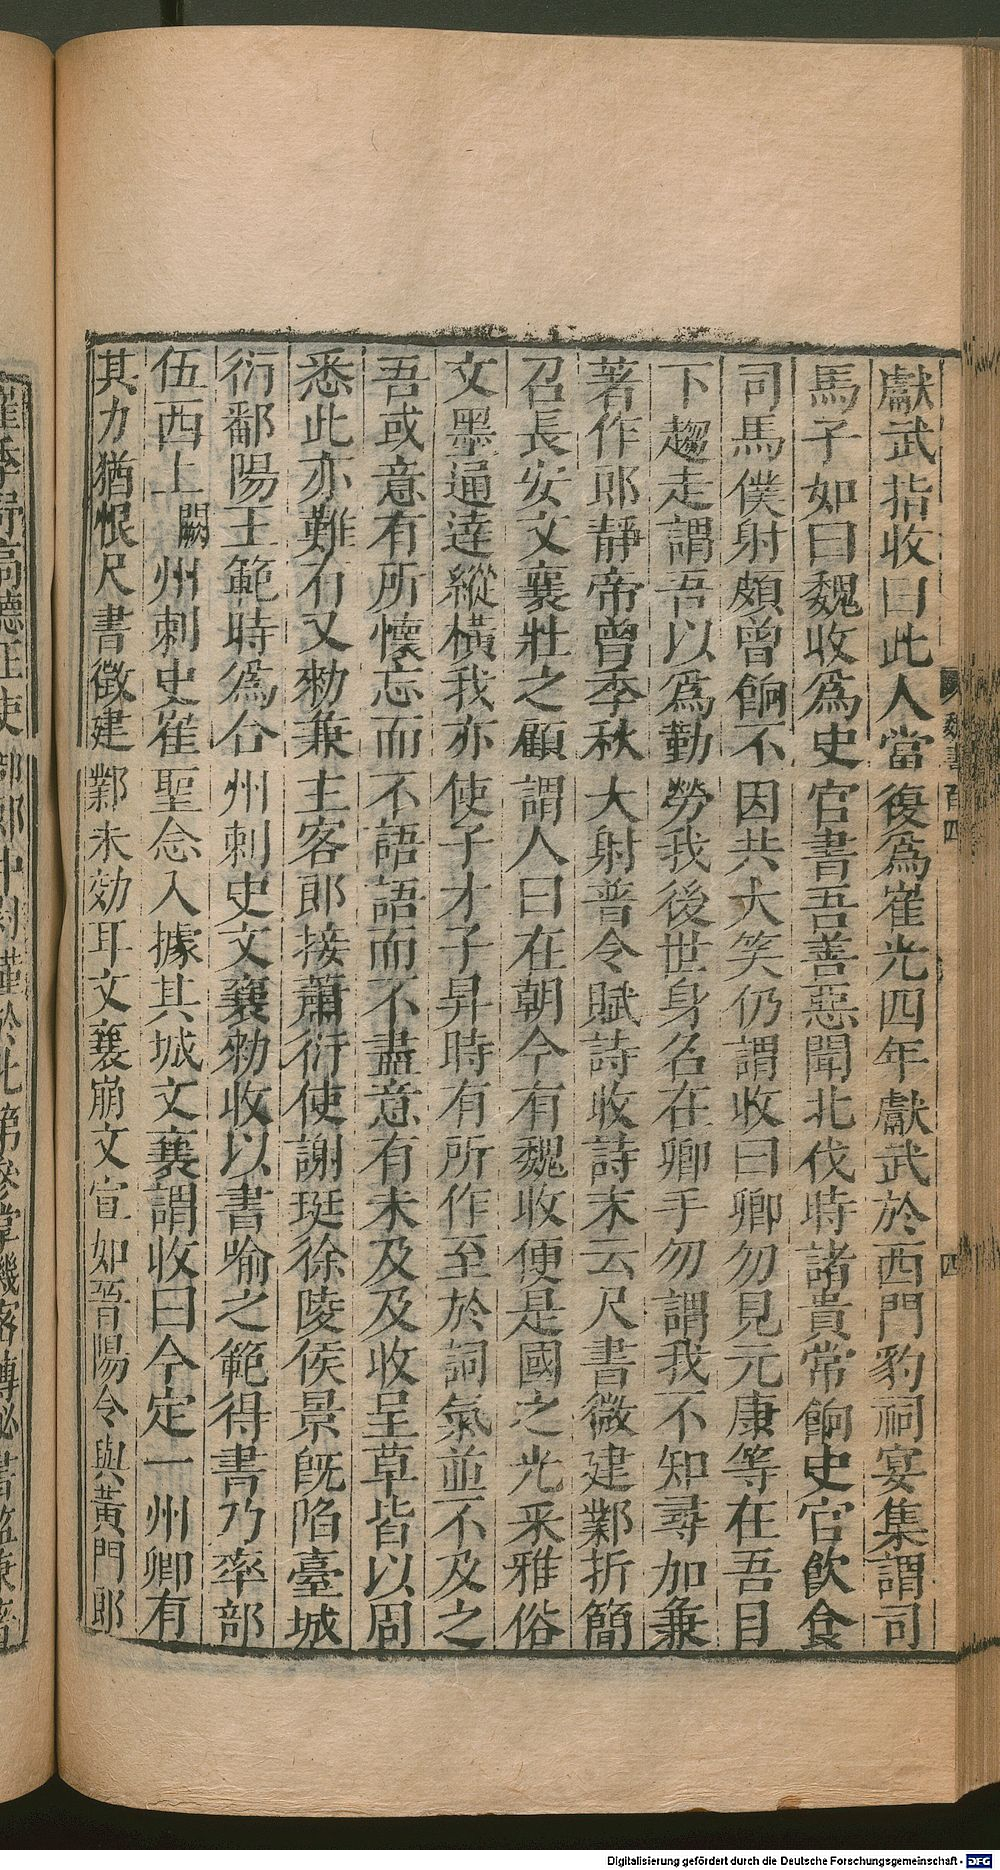 獻武指收曰此人當復爲崔光四年獻武於西門豹祠宴集謂司
馬子如曰魏收爲史官書吾善惡聞北伐時諸貴常餉史官飲食
司馬僕射頗曾餉不因共大笑仍謂收曰卿勿見元康等在吾目
下趨走謂吾以爲勤勞我後世身名在卿手勿謂我不知尋加兼
著作郎靜帝曾季秋大射普令賦詩收詩末云尺書徵建鄴折簡
召長安文襄壯之顧謂人曰在朝今有魏收便是國之光采雅俗
文墨通達縱橫我亦使子才子昇時有所作至於詞氣並不及之
吾或意有所懷忘而不語語而不盡意有未及及收呈草皆以周
悉此亦難有又勑兼主客郎接蕭衍使謝珽徐陵侯景旣陷臺城
衍鄱陽王範時爲合州刺史文襄勑收以書喻之範得書乃率部
伍西上闕州刺史崔聖念入據其城文襄謂收曰今定一州卿有
其力猶恨尺書徵建鄴未効耳文襄崩文宣如晉陽令與黃門郎
魏書百四
四
Digitalisierung gefördert durch die Deutsche Forschungsgemeinschaft - DFG